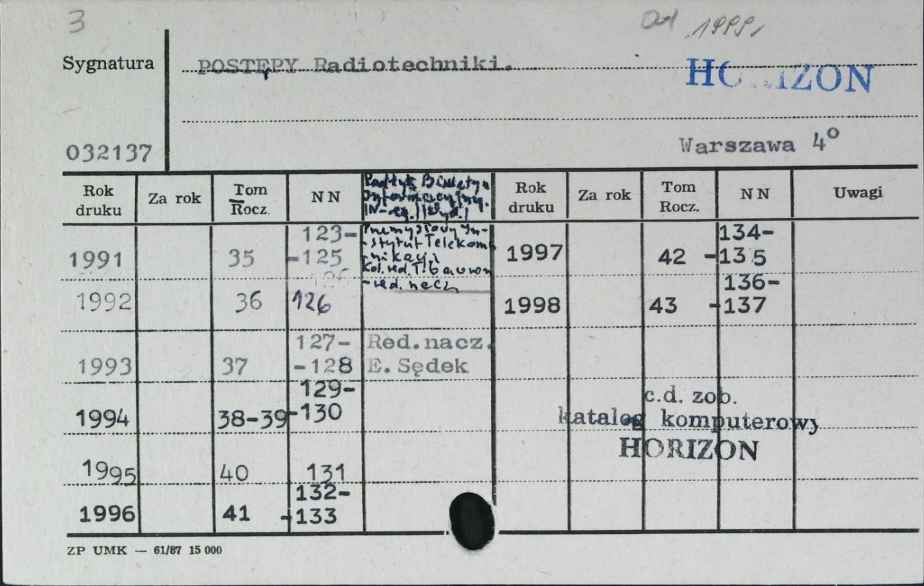 3
Od 1999.
Sygnatura
POSTĘPY Radiotechniki.
HORIZON
032137
Warszawa 4º
Rok druku | Za rok | Tom Rocz. | NN | Rok druku | Za rok | Tom Rocz. | NN | Uwagi
1991 | 35 | 123-125
1992 | 36 | 126
1993 | 37 | 127-128
1994 | 38-39 | 129-130
1995 | 40 | 131
1996 | 41 | 132-133
Informacyjny.
Przemysłowy In-
stytut Telekom
Red. nacz.
E. Sędek
1997 | 42 | 134-135
1998 | 43 | 136-137
c.d. zob.
katalog komputerowy
HORIZON
ZP UMK — 61/87 15 000